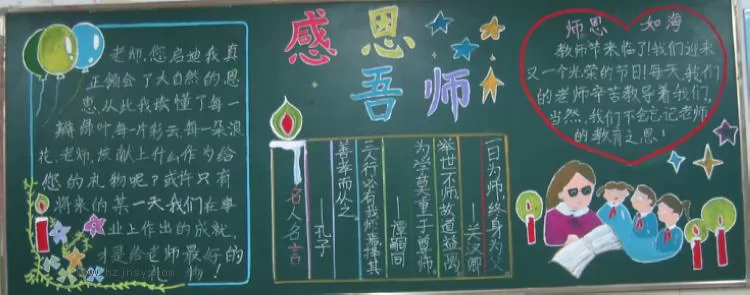 老师,您启迪我真
正领会了大自然的恩
惠,从此我读懂了每一
瓣绿叶,每一片彩云,每一朵浪
花。老师,该献上什么作为给
您的礼物呢?或许只有
将来的某一天我们在事
业上作出的成就,
才是给老师最好的
礼物!
感恩
吾师
一日为师,终身为父
——关汉卿
举世不师,故道益离
为学莫重于尊师。
——谭嗣同
三人行必有我师焉择其
善者而从之。
——孔子
名人名言
师恩 如海
教师节来临了!我们迎来
又一个光荣的节日!每天,我们
的老师辛苦教导着我们,
当然,我们不会忘记老师
的教育之恩!